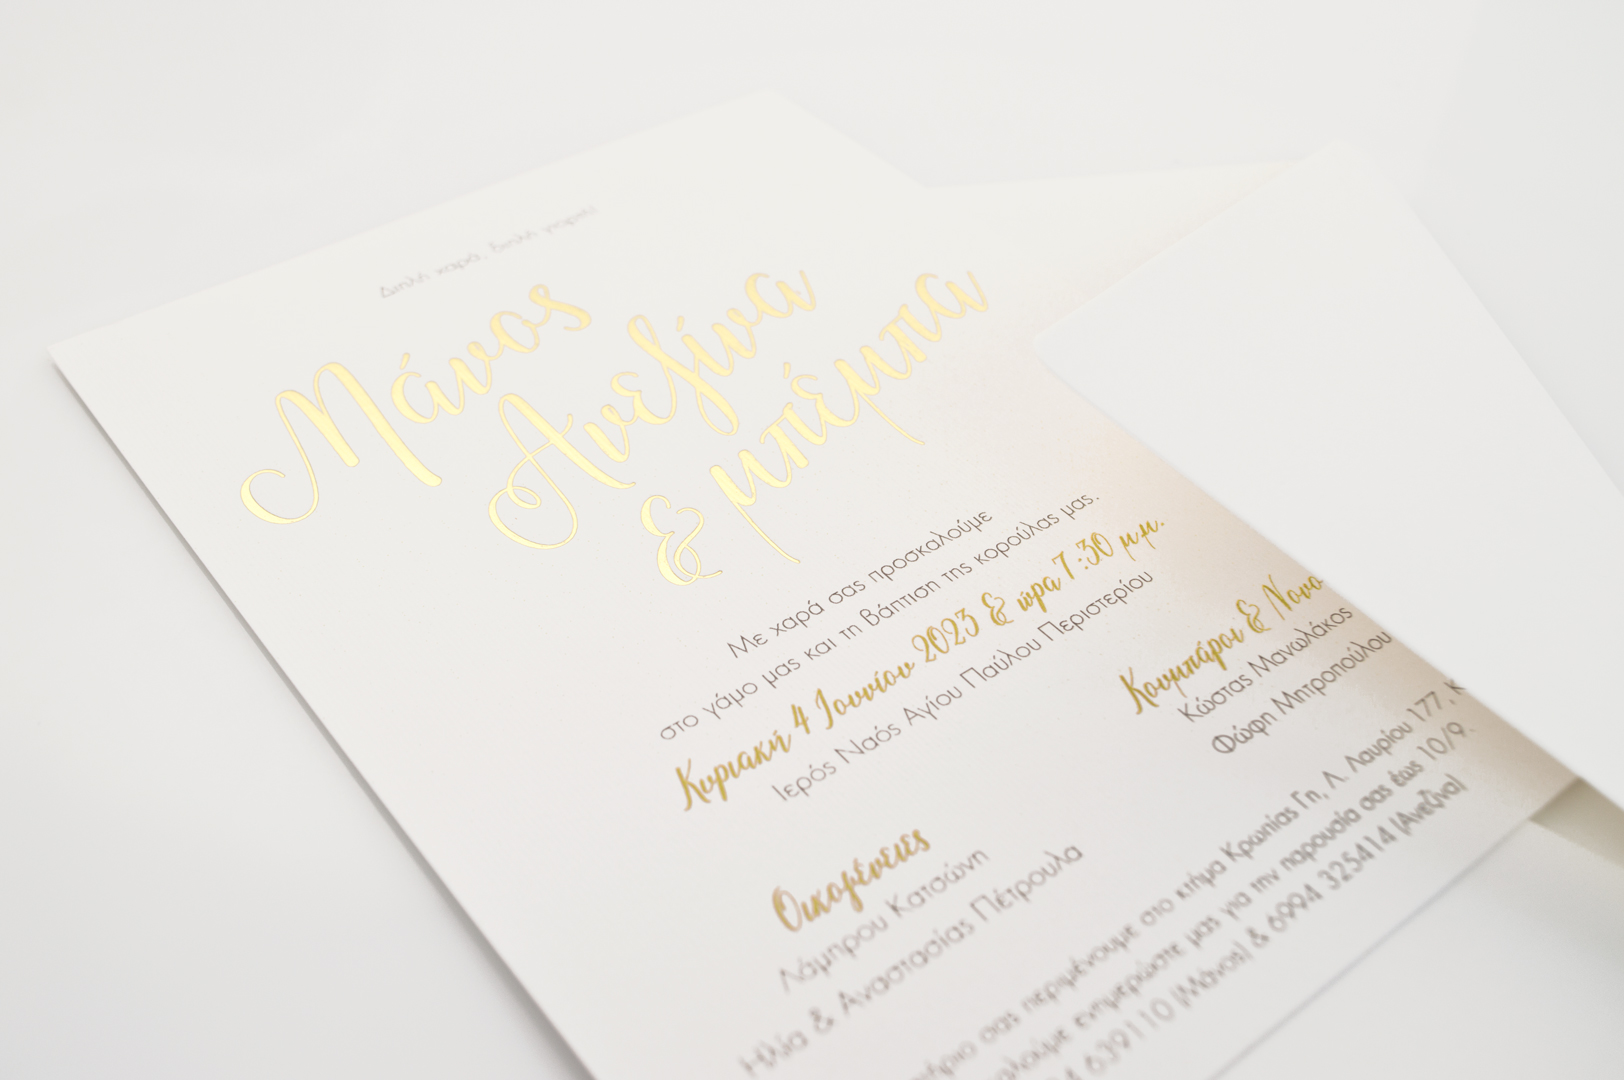 Διπλή χαρά, διπλή γιορτή!
Μάνος
Ανεζίνα
& μπέμπα
Με χαρά σας προσκαλούμε
στο γάμο μας και τη βάπτιση της κορούλας μας.
Κυριακή 4 Ιουνίου 2023 & ώρα 7:30 μ.μ.
Ιερός Ναός Αγίου Παύλου Περιστερίου
Κουμπάροι & Νονο
Κώστας Μανωλάκος
Φώφη Μητροπούλου
Οικογένειες
Λάμπρου Κατσώνη
Ηλία & Αναστασίας Πέτρουλα
σας περιμένουμε στο κτήμα Κρωπίας Γη, Λ. Λαυρίου 177, Κ
ενημερώστε μας για την παρουσία σας έως 10/9.
639110 (Μάνος) & 6994 325414 (Ανεζίνα)